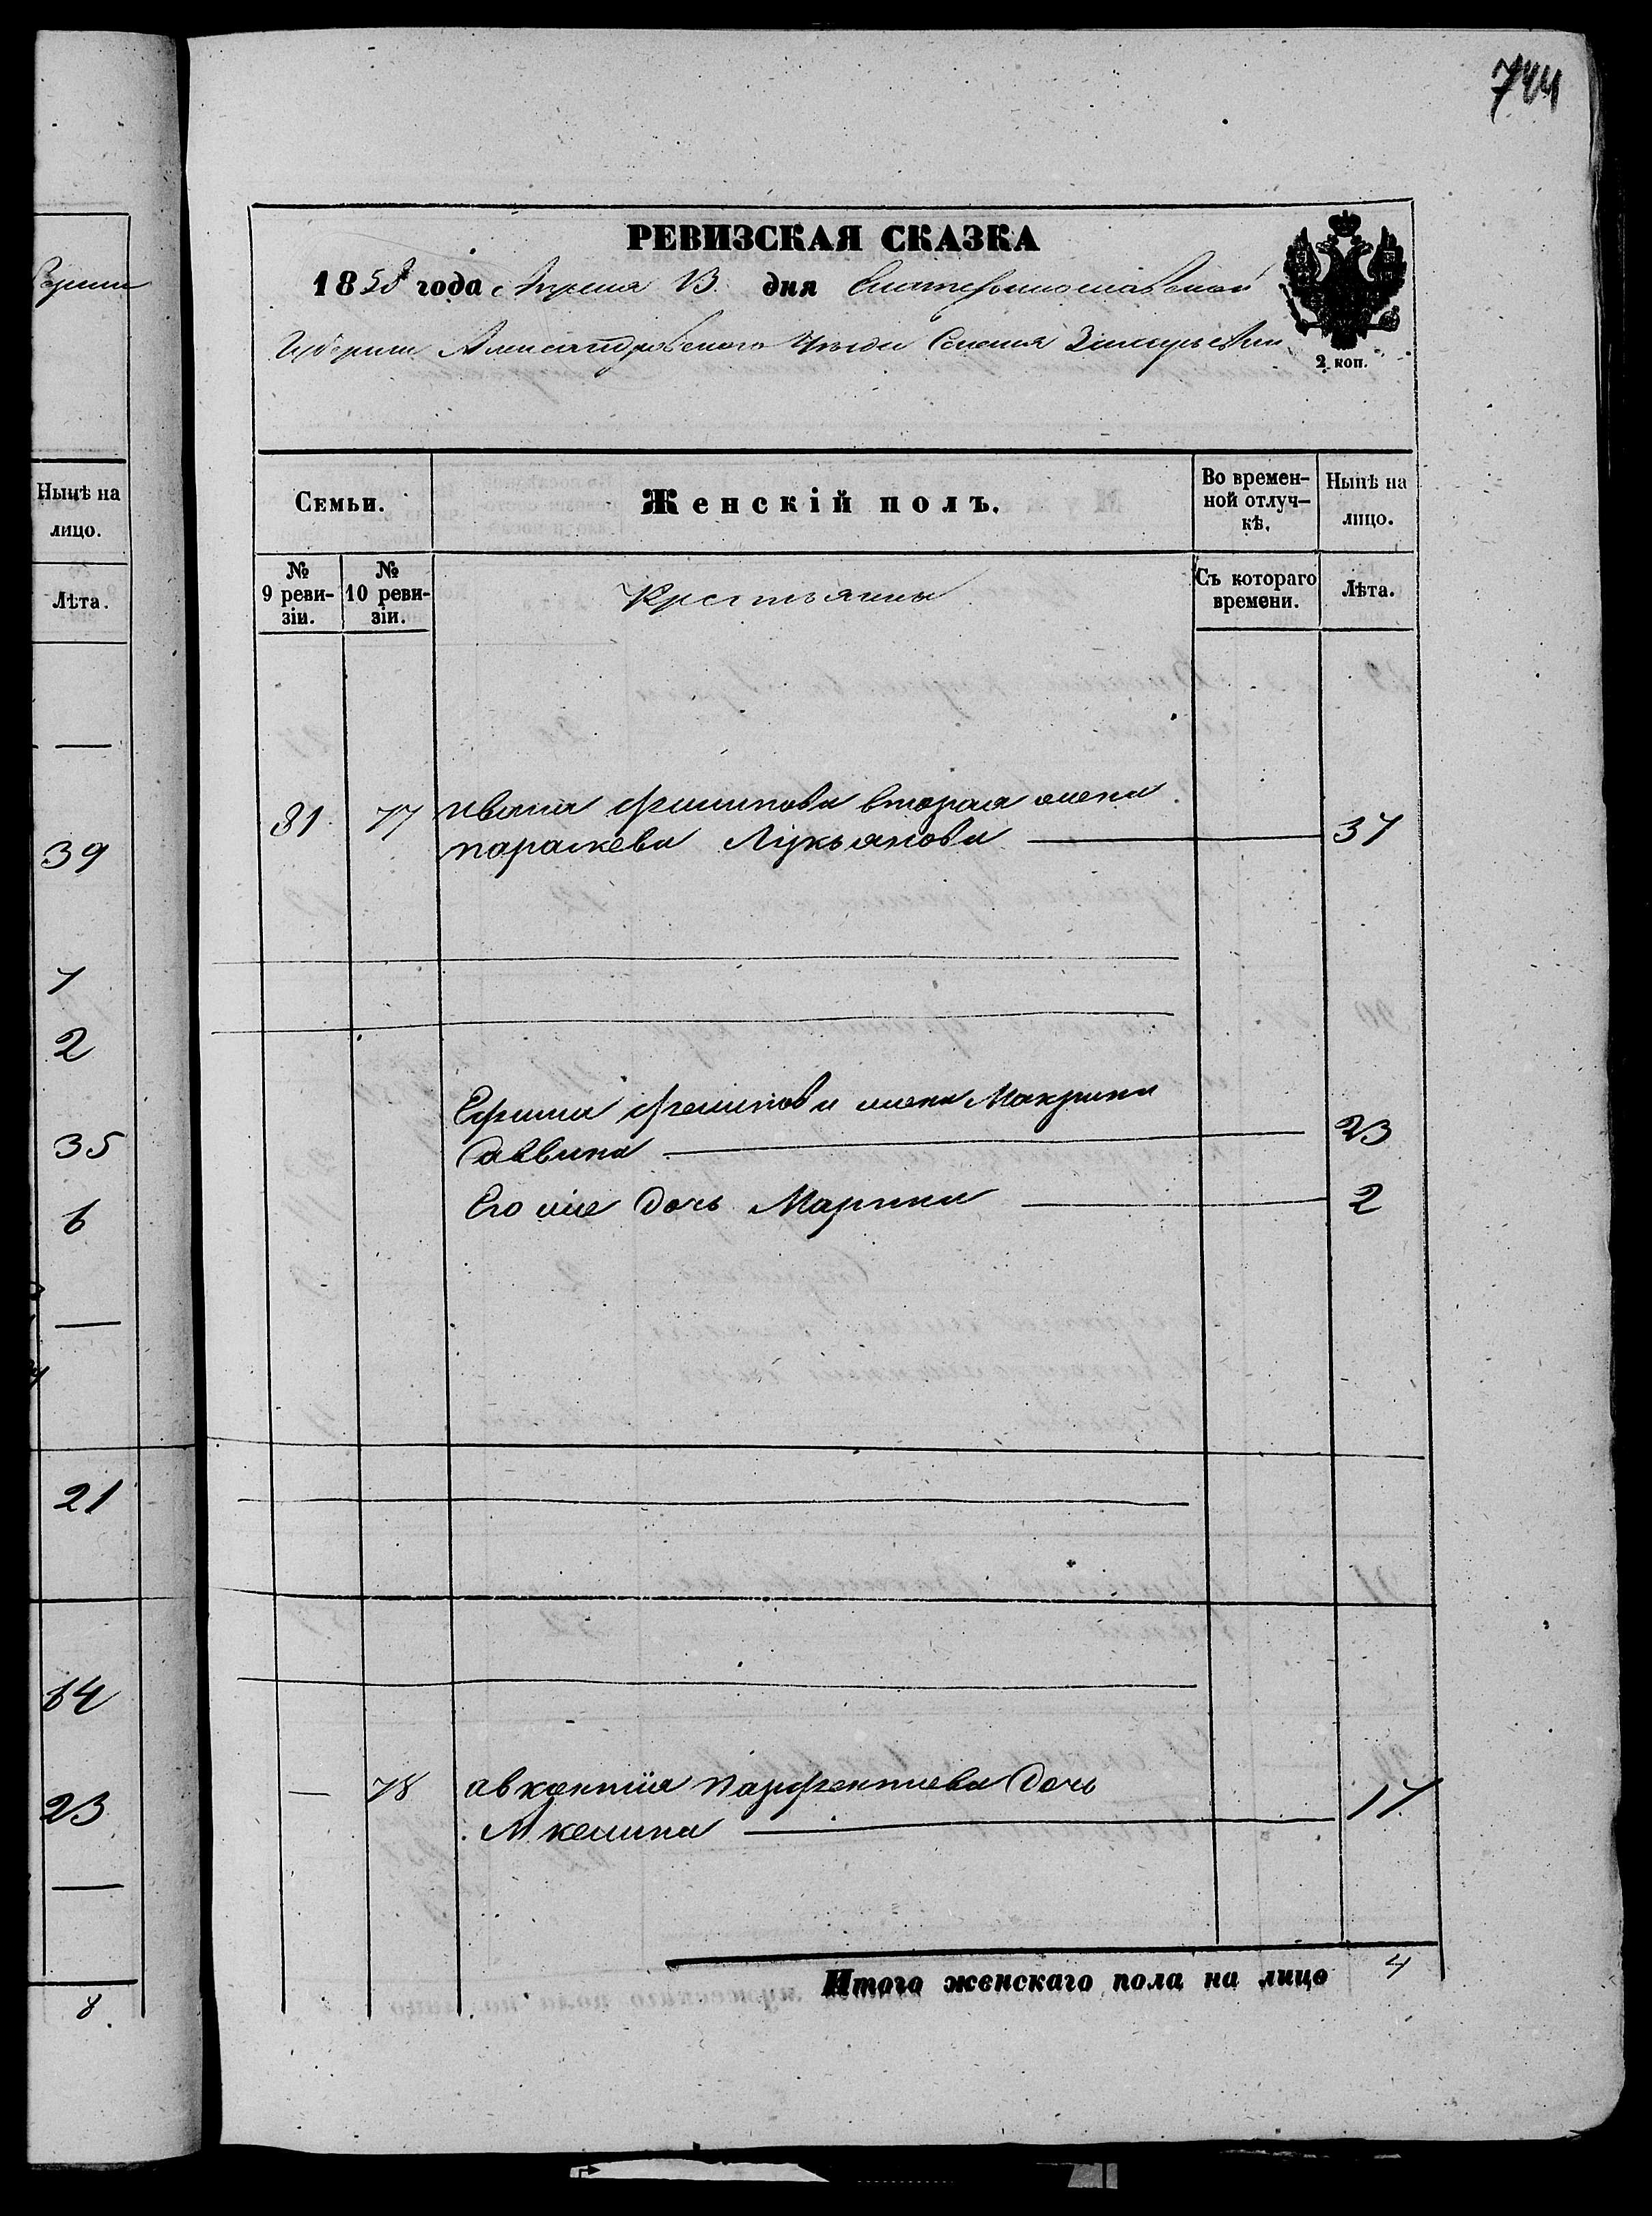 744
РЕВИЗСКАЯ СКАЗКА
1858 года Апреля 13 дня Екатеринославской
Губернии Александровского Уезда Селения
2 коп.
Семьи.
Женскій полъ.
Во времен-
ной отлуч-
кѣ.
Нынѣ на
лицо.
№
9 реви-
зіи.
№
10 реви-
зіи.
Крестьяны
Съ котораго
времени.
Лѣта.
81 77 ивана филипова вторая жена
параскева Лукьянова 37
Ефима филипова жена Макрина
Саввина 23
Его же дочь Марина 2
— 78 авксентія парфентиева дочь
Акелина 17
Итого женскаго пола на лицо 4
Нынѣ на
лицо.
Лѣта.
—
39
7
2
35
6
—
21
64
23
—
8